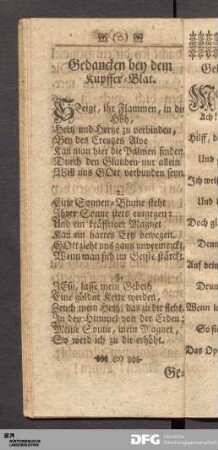 Gedancken bey dem
Kupffer-Blat.
Steigt, ihr Flammen, in die
Höh,
Hertz und Hertze zu verbinden,
Bey des Creutzes Aloe
Kan man hier die Palmen finden,
Durch den Glauben nur allein
Will uns GOtt verbunden seyn
Eine Sonnen-Blume steht
Ihrer Sonne stets entgegen:
Und ein kräfftiger Magnet
Kan ein hartes Ertz bewegen.
GOtt zieht uns gantz unvermerckt,
Wenn man sich im Geiste stärckt.
JEsu, lasse mein Gebeth
Eine göldne Kette werden,
Zeuch mein Hertz, das zu dir steht,
In den Himmel von der Erden:
Meine Sonne, mein Magnet,
So werd ich zu dir erhöht.
Ge-
Ach!
Hülff,
Und
Ich weiß
Und
Doch
Denn
Auf
Wenn
DFG
Deutsche
Forschungsgemeinschaft